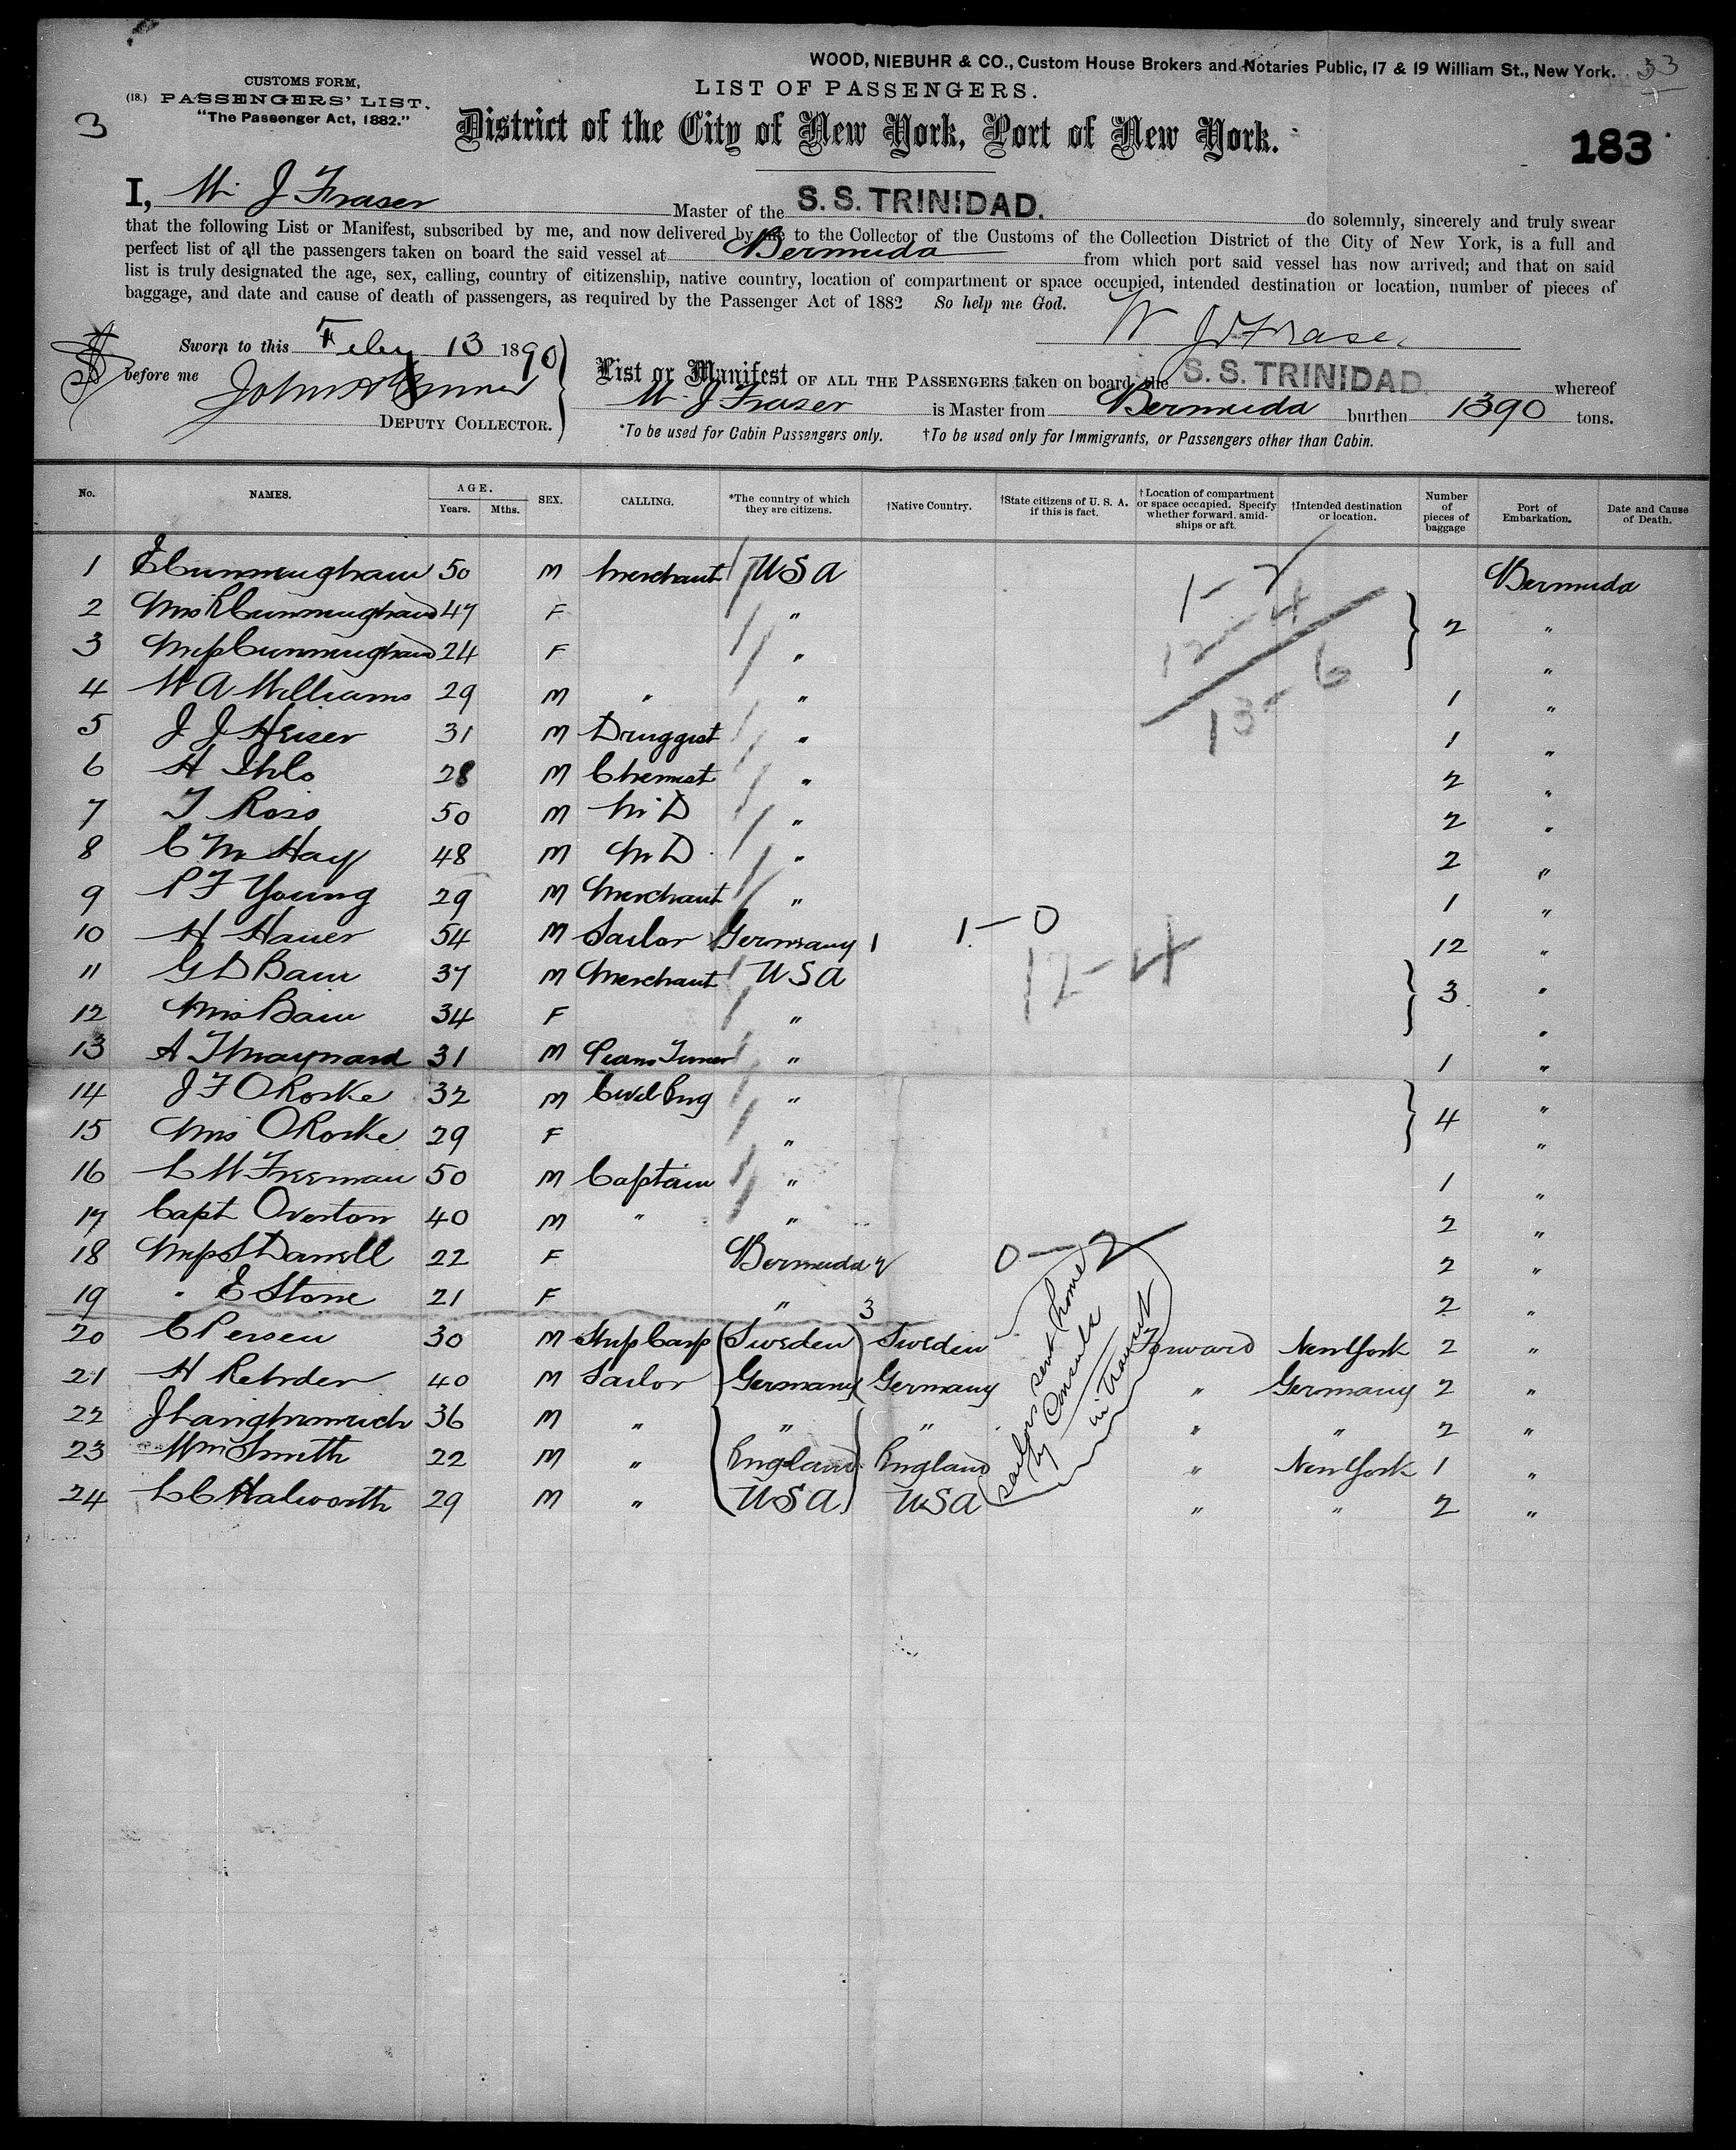 WOOD, NIEBUHR & CO., Custom House Brokers and Notaries Public, 17 & 19 William St., New York. 33
CUSTOMS FORM,
LIST OF PASSENGERS.
(18.) PASSENGERS' LIST.
"The Passenger Act, 1882."
3
District of the City of New York, Port of New York.
183
I, W. J Fraser Master of the S. S. TRINIDAD. do solemnly, sincerely and truly swear
that the following List or Manifest, subscribed by me, and now delivered by me to the Collector of the Customs of the Collection District of the City of New York, is a full and
perfect list of all the passengers taken on board the said vessel at Bermuda from which port said vessel has now arrived; and that on said
list is truly designated the age, sex, calling, country of citizenship, native country, location of compartment or space occupied, intended destination or location, number of pieces of
baggage, and date and cause of death of passengers, as required by the Passenger Act of 1882 So help me God.
W J Fraser
Sworn to this Feby 13 1890
before me John
DEPUTY COLLECTOR.
List or Manifest OF ALL THE PASSENGERS taken on board the S. S. TRINIDAD whereof
W. J Fraser is Master from Bermuda burthen 1390 tons.
*To be used for Cabin Passengers only. †To be used only for Immigrants, or Passengers other than Cabin.
No. NAMES. AGE. Years. Mths. SEX. CALLING. *The country of which they are citizens. †Native Country. †State citizens of U. S. A. if this is fact. †Location of compartment or space occupied. Specify whether forward, amidships or aft. †Intended destination or location. Number of pieces of baggage Port of Embarkation. Date and Cause of Death.
1 E Cunningham 50 M Merchant USA 1 - 2 Bermuda
2 Mrs Cunningham 47 F " 12 - 4 2 "
3 Miss Cunningham 24 F " "
4 W A Williams 29 M " " 13 - 6 1 "
5 J J Heiser 31 M Druggist " 1 "
6 H Ihlo 28 M Chemist " 2 "
7 T Ross 50 M M D " 2 "
8 C M Hay 48 M M D " 2 "
9 P F Young 29 M Merchant " 1 "
10 H Hauer 54 M Sailor Germany 1 1 - 0 12 "
11 G D Bain 37 M Merchant USA 12 - 4 3 "
12 Mrs Bain 34 F " "
13 A T Maynard 31 M Piano Tuner " 1 "
14 J F ORorke 32 M Civil Eng " 4 "
15 Mrs ORorke 29 F " "
16 L W Freeman 50 M Captain " 1 "
17 Capt Overton 40 M " " 2 "
18 Miss Darrell 22 F Bermuda 2 0 - 2 2 "
19 " E Stone 21 F " 3 2 "
20 C Persen 30 M Ship Carp Sweden Sweden Forward New York 2 "
21 H Rehrder 40 M Sailor Germany Germany " Germany 2 "
22 J 36 M " " " " " 2 "
23 Wm Smith 22 M " England England " New York 1 "
24 L C Halworth 29 M " USA USA " " 2 "
sailors sent home
by Consuls
in transit